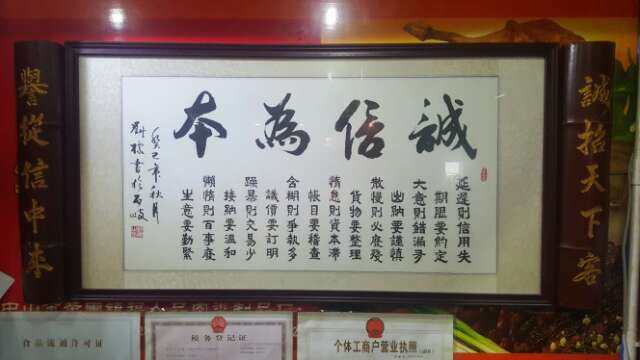 誠招天下客
誠信為本
延遲則信用失
期限要約定
大意則錯漏多
出納要謹慎
散慢則
貨物要整理
則資本滯
帳目要稽查
含糊則爭執多
議價要訂明
躁暴則交易少
接納要溫和
懶惰則百事廢
生意要勤緊
癸巳年秋月
譽從信中來
食品流通许可证
税务登记证
个体工商户营业执照